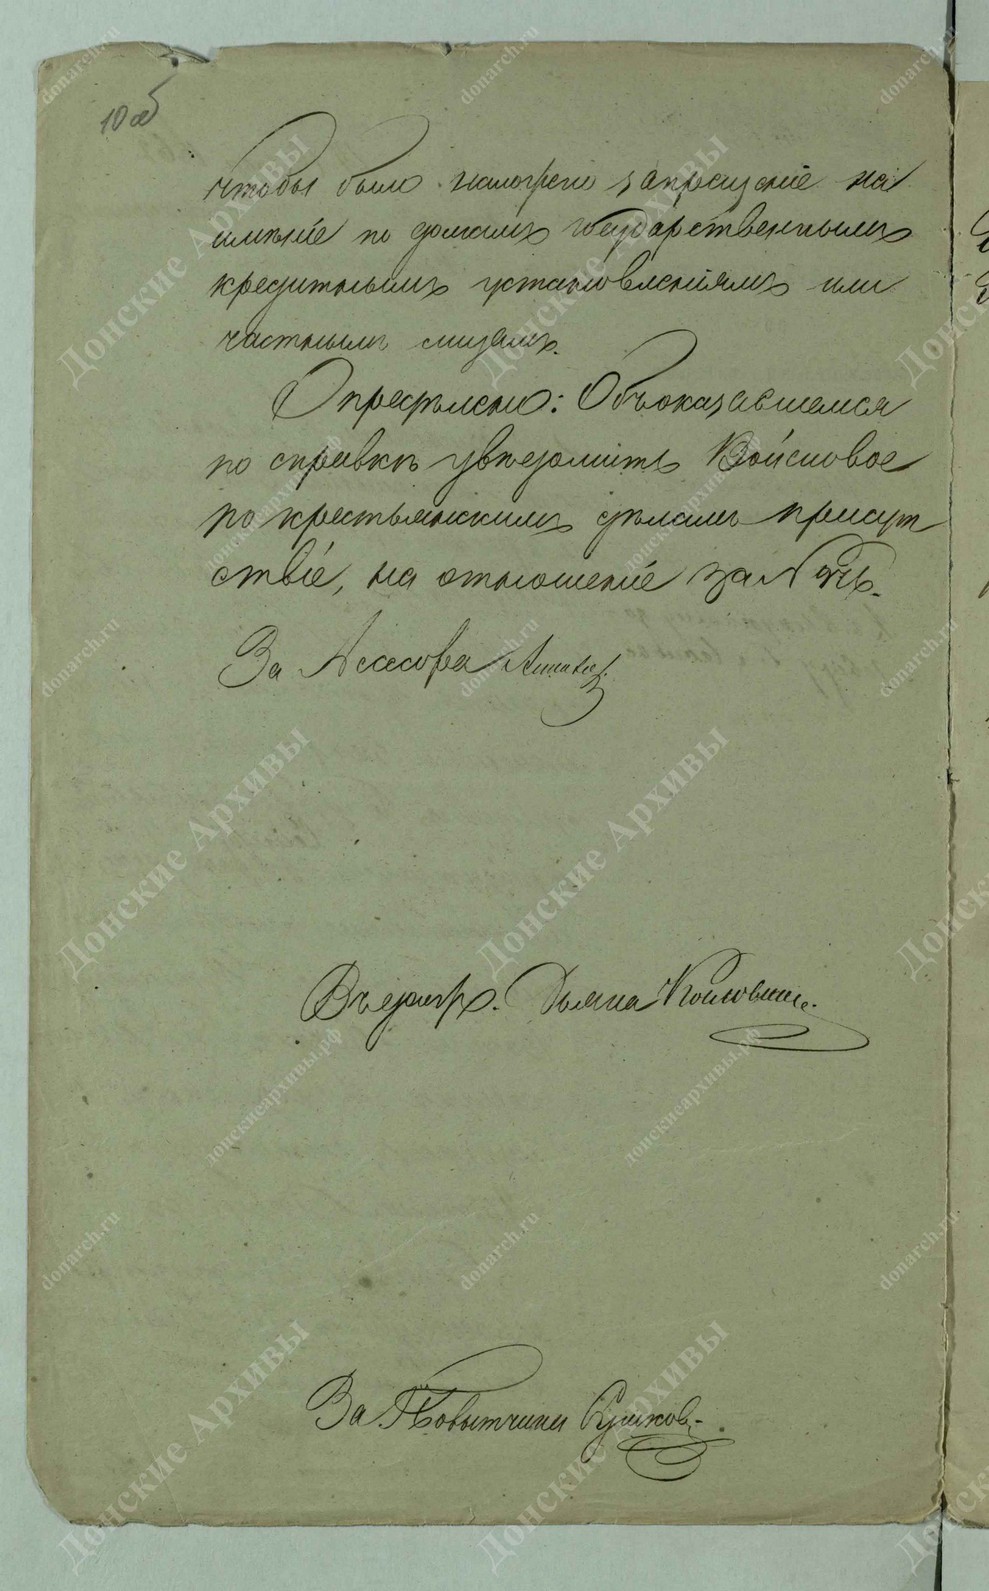 10 об
чтобы было наложено запрещеніе на
имѣніе по долгамъ Государственнымъ
кредитнымъ установленіямъ или
частнымъ лицамъ.
Опредѣлено: Объ оказавшемся
по справкѣ увѣдомить Войсковое
по крестьянскимъ дѣламъ присут
ствіе, на отношеніе за №
За Асессора
Дьяка
За Повытчика Куликовъ
Донские Архивы
донскиеархивы.рф
donarch.ru